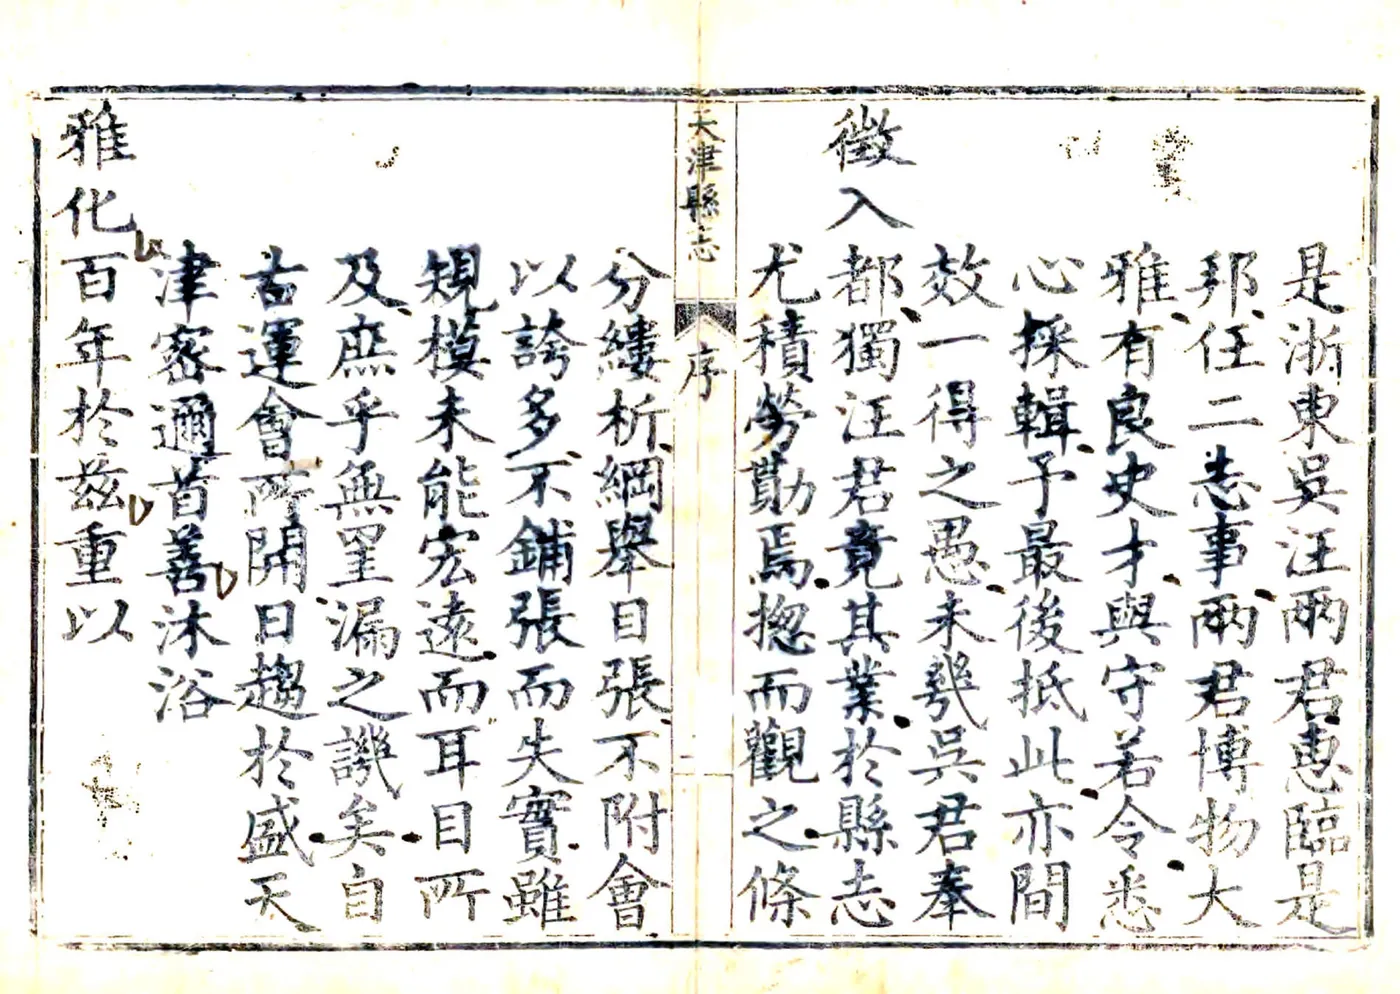 是浙東吳汪兩君惠臨是
邦任二志事兩君博物大
雅有良史才與守若令悉
心採輯予最後抵此亦間
效一得之愚未幾吳君奉
徵入
都獨汪君竟其業於縣志
尤積勞勩焉揔而觀之條
天津縣志
序
分縷析綱舉目張不附會
以誇多不鋪張而失實雖
規模未能宏遠而耳目所
及庶乎無罣漏之譏矣自
古運會所開日趨於盛天
津密邇首善沐浴
雅化百年於茲重以